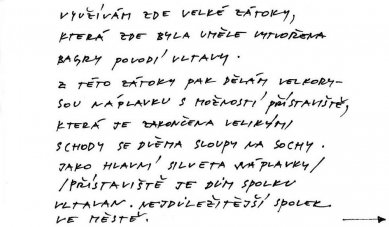 VYUŽÍVÁM ZDE VELKÉ ZÁTOKY,
KTERÁ ZDE BYLA UMĚLE VYTVOŘENA
BAGRY POVODÍ VLTAVY.
Z TÉTO ZÁTOKY PAK DĚLÁM VELKORY-
SOU NÁPLAVKU S MOŽNOSTÍ PŘÍSTAVIŠTĚ,
KTERÁ JE ZAKONČENA VELIKÝMI
SCHODY SE DVĚMA SLOUPY NA SOCHY.
JAKO HLAVNÍ SILVETA NÁPLAVKY/
/PŘÍSTAVIŠTĚ JE DŮM SPOLKU
VLTAVAN. NEJDŮLEŽITĚJŠÍ SPOLEK
VE MĚSTĚ.